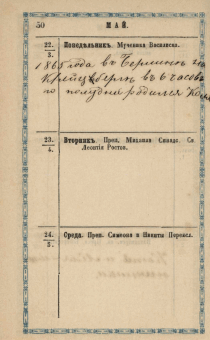 50
МАЙ.
22.
3.
Понедѣльникъ. Мученика Василиска.
1865 года въ Берлинѣ на
въ 6 часовъ
по полудни родился
23.
4.
Вторникъ. Преп. Михаила Синад. Св
Леонтія Ростов.
24.
5.
Среда. Преп. Симеона и Никиты Переясл.